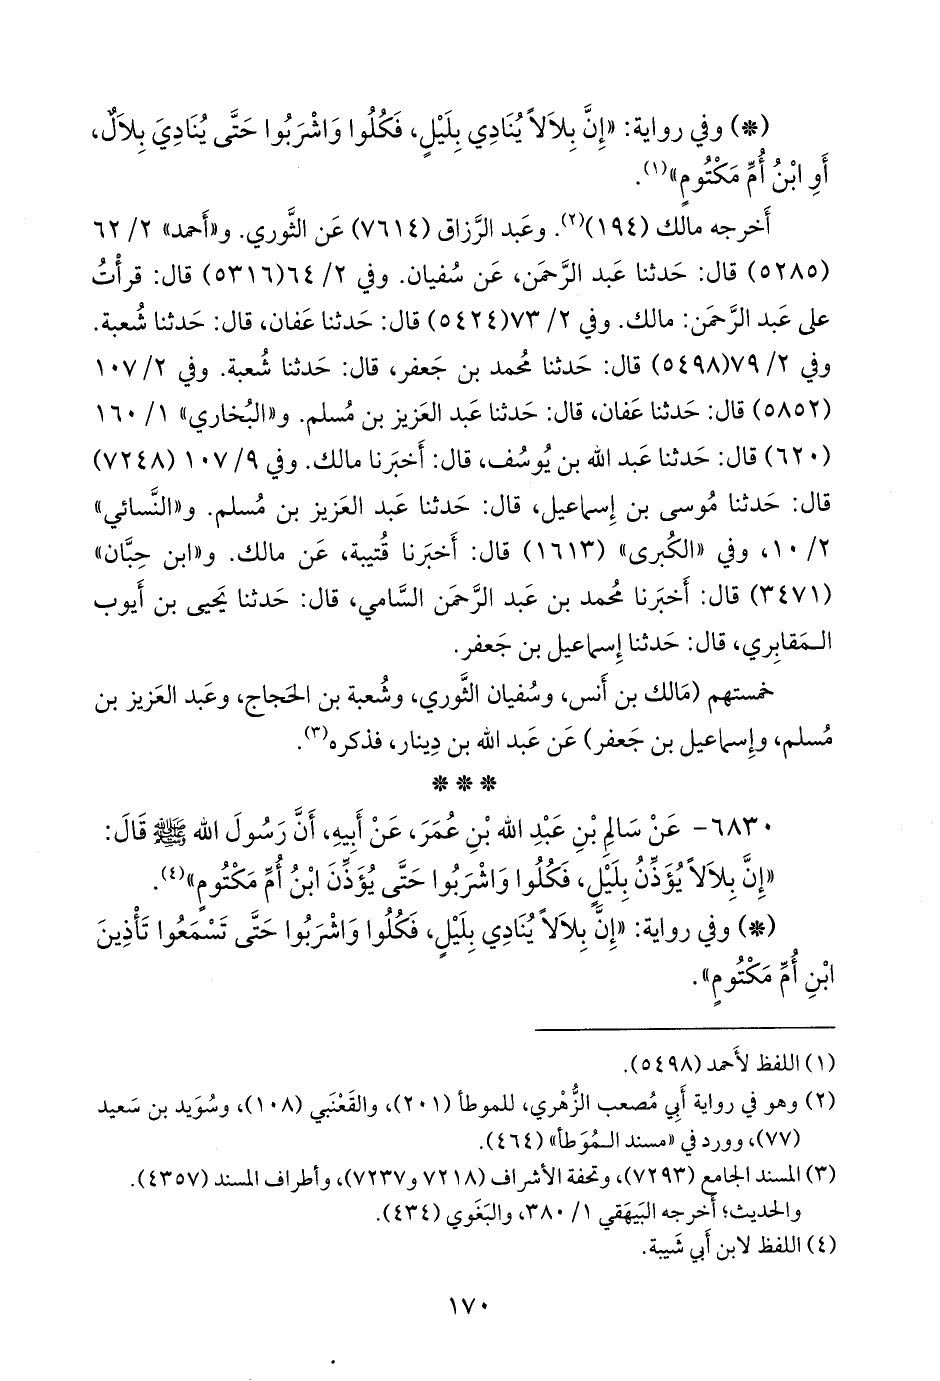 (*) وفي رواية: «إِنَّ بِلاَلاً يُنَادِي بِلَيْلٍ، فَكُلُوا وَاشْرَبُوا حَتَّى يُنَادِيَ بِلاَلٌ،
أَوِ ابْنُ أُمِّ مَكْتُومٍ»(١).
أَخرجه مالك (١٩٤)(٢). وعَبد الرَّزاق (٧٦١٤) عَن الثَّوري. و«أَحمد» ٢/ ٦٢
(٥٢٨٥) قال: حَدثنا عَبد الرَّحمَن، عَن سُفيان. وفي ٢/ ٦٤(٥٣١٦) قال: قرأْتُ
على عَبد الرَّحمَن: مالك. وفي ٢/ ٧٣(٥٤٢٤) قال: حَدثنا عَفان، قال: حَدثنا شُعبة.
وفي ٢/ ٧٩(٥٤٩٨) قال: حَدثنا مُحمد بن جَعفر، قال: حَدثنا شُعبة. وفي ٢/ ١٠٧
(٥٨٥٢) قال: حَدثنا عَفان، قال: حَدثنا عَبد العَزيز بن مُسلم. و«البُخاري» ١/ ١٦٠
(٦٢٠) قال: حَدثنا عَبد الله بن يُوسُف، قال: أَخبَرنا مالك. وفي ٩/ ١٠٧ (٧٢٤٨)
قال: حَدثنا مُوسى بن إِسماعيل، قال: حَدثنا عَبد العَزيز بن مُسلم. و«النَّسائي»
٢/ ١٠، وفي «الكُبرى» (١٦١٣) قال: أَخبَرنا قُتيبة، عَن مالك. و«ابن حِبَّان»
(٣٤٧١) قال: أَخبَرنا مُحمد بن عَبد الرَّحمَن السَّامي، قال: حَدثنا يَحيى بن أَيوب
الـمَقابِري، قال: حَدثنا إِسماعيل بن جَعفر.
خمستهم (مَالك بن أَنس، وسُفيان الثَّوري، وشُعبة بن الحَجاج، وعَبد العَزيز بن
مُسلم، وإِسماعيل بن جَعفر) عَن عَبد الله بن دِينار، فذكره(٣).
* * *
٦٨٣٠- عَنْ سَالِمِ بْنِ عَبْدِ الله بْنِ عُمَرَ، عَنْ أَبِيهِ، أَنَّ رَسُولَ الله ﷺ قَالَ:
«إِنَّ بِلاَلاً يُؤَذِّنُ بِلَيْلٍ، فَكُلُوا وَاشْرَبُوا حَتَّى يُؤَذِّنَ ابْنُ أُمِّ مَكْتُومٍ»(٤).
(*) وفي رواية: «إِنَّ بِلاَلاً يُنَادِي بِلَيْلٍ، فَكُلُوا وَاشْرَبُوا حَتَّى تَسْمَعُوا تَأْذِينَ
ابْنِ أُمِّ مَكْتُومٍ».
(١) اللفظ لأَحمد (٥٤٩٨).
(٢) وهو في رواية أَبي مُصعب الزُّهْري، للموطأ (٢٠١)، والقَعْنَبي (١٠٨)، وسُوَيد بن سَعيد
(٧٧)، وورد في «مسند الـمُوَطأ» (٤٦٤).
(٣) المسند الجامع (٧٢٩٣)، وتحفة الأشراف (٧٢١٨ و٧٢٣٧)، وأطراف المسند (٤٣٥٧).
والحديث؛ أَخرجه البَيهَقي ١/ ٣٨٠، والبَغَوي (٤٣٤).
(٤) اللفظ لابن أَبي شَيبة.
١٧٠